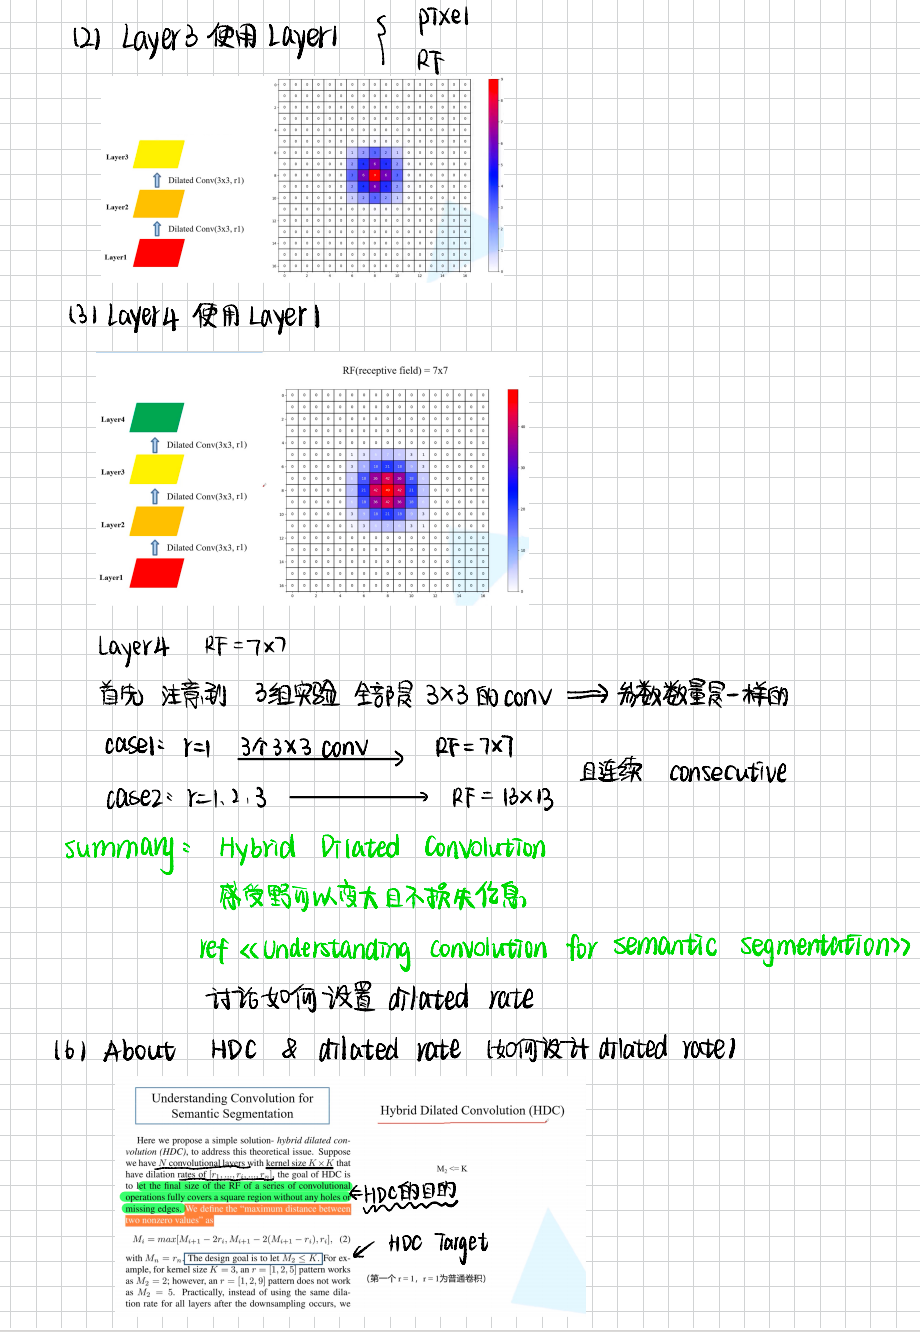 (2) Layer3 使用 Layer1 { pixel
RF
Layer3
Dilated Conv(3x3, r1)
Layer2
Dilated Conv(3x3, r1)
Layer1
(3) Layer4 使用 Layer1
RF(receptive field) = 7x7
Layer4
Dilated Conv(3x3, r1)
Layer3
Dilated Conv(3x3, r1)
Layer2
Dilated Conv(3x3, r1)
Layer1
Layer4 RF = 7×7
首先 注意到 3组实验 全部是 3×3 的 conv ⟹ 参数数量是一样的
case1: r=1 3个 3×3 conv → RF = 7×7
且连续 consecutive
case2: r=1, 2, 3 → RF = 13×13
summary: Hybrid Dilated Convolution
感受野可以变大且不损失信息
ref <<Understanding convolution for semantic segmentation>>
讨论如何设置 dilated rate
(6) About HDC & dilated rate (如何设计 dilated rate)
Understanding Convolution for
Semantic Segmentation
Hybrid Dilated Convolution (HDC)
Here we propose a simple solution- hybrid dilated con-
volution (HDC), to address this theoretical issue. Suppose
we have N convolutional layers with kernel size K × K that
have dilation rates of [r1, ..., ri, ..., rn], the goal of HDC is
to let the final size of the RF of a series of convolutional
operations fully covers a square region without any holes or
missing edges. We define the "maximum distance between
two nonzero values" as
M2 <= K
HDC的目的
Mi = max[Mi+1 − 2ri, Mi+1 − 2(Mi+1 − ri), ri], (2)
HDC Target
with Mn = rn. The design goal is to let M2 ≤ K. For ex-
ample, for kernel size K = 3, an r = [1, 2, 5] pattern works
as M2 = 2; however, an r = [1, 2, 9] pattern does not work
as M2 = 5. Practically, instead of using the same dila-
tion rate for all layers after the downsampling occurs, we
(第一个 r = 1, r = 1为普通卷积)